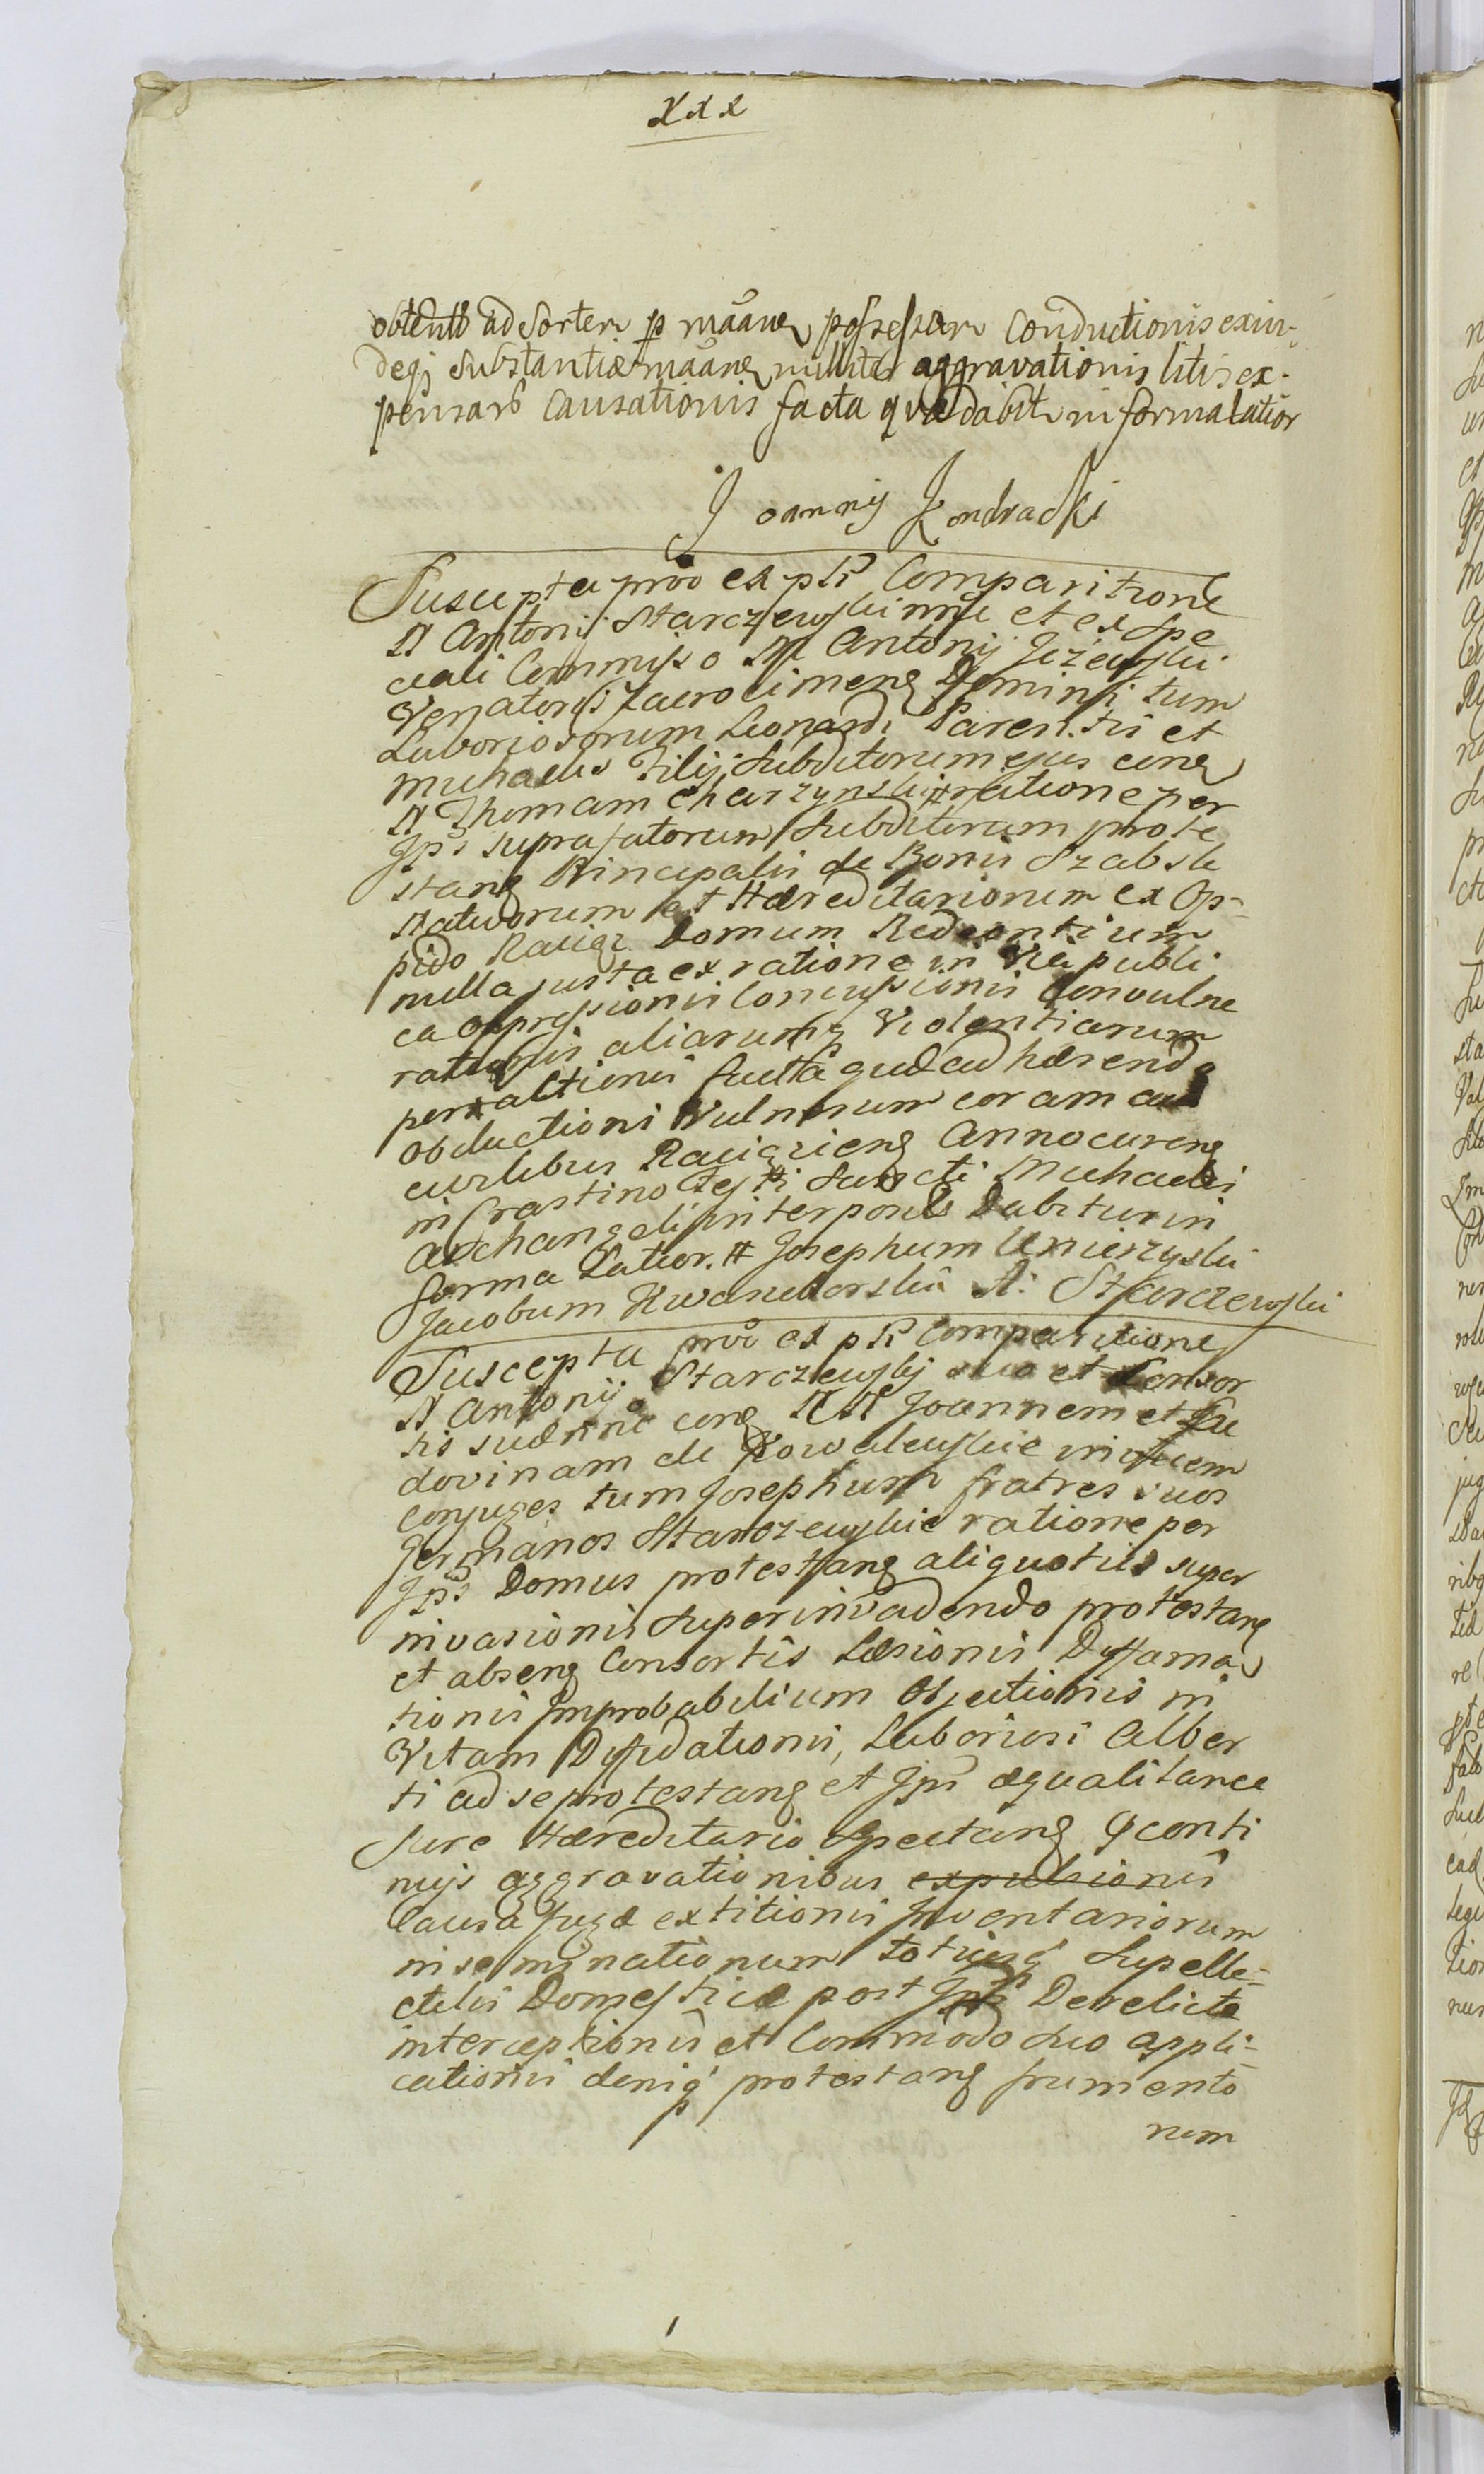 xxx
obtento ad sortem p maane possessam conductionis exin-
deqz substantiæ maane militer aggravationis litis ex-
pensarb causationis facta quæ dabit in forma latior
Joannis Kondracki
Suscepta pro ex psti Comparitione
N Antonij Starczewski nme et ex spe
ciali Commisso M Antonij Jeżewski
Venatoris Zacrocimens Domini tum
Laboriosorum Leonardi Parentis et
Michaelis Filij Subditorum ejus cong
N Thomam Charzynski # ratione per
Jps suprafatorum Subditorum prote
stang Principalis de Bonis Szabsk
Natudorum et Hæreditariorum ex Op-
pido Raciąz Domum Redeuntium
nulla justa ex ratione in Via publi
ca oppressionis Concussionis Convulne
rationis aliarumqz Violentiarum
peractionis facta quæ adhærendo
obductioni Vulnerum coram
curlibus Raciązieng Anno cureng
in Crastino Festi Sancti Michaelis
Archangeli interposit Dabitur in
forma Latior. # Josephum Unierzyski
Jacobum Kwasieborski A: Starczewski
Suscepta pro ex psti Comparitione
N Antonij Starczewskj suo et Consor
tis suæ nne cong NN Joannem et Lu
dovinam de Kowalewskie invicem
Conjuges tum Josephum fratres suos
Germanos Starczewskie ratione per
Jps Domus protestang aliquoties super
invasionis Superinvadendo protestang
et abseng Consortis Læsionis Dyffama
tionis Improbabilium Objectionis in
Vitam Dyffidationis, Laboriosi Alber
ti ad se protestang et Jps æqualitance
Jure Hæreditario Spectang q conti
nujs aggravationibus expulsionis
Causa fugæ extitionis Inventariorum
inseminationum totiusq Supelle-
ctilis Domesticæ post Jps Derelicta
interceptionis et Commodo suo appli-
cationis deniq protestang frumento
rum